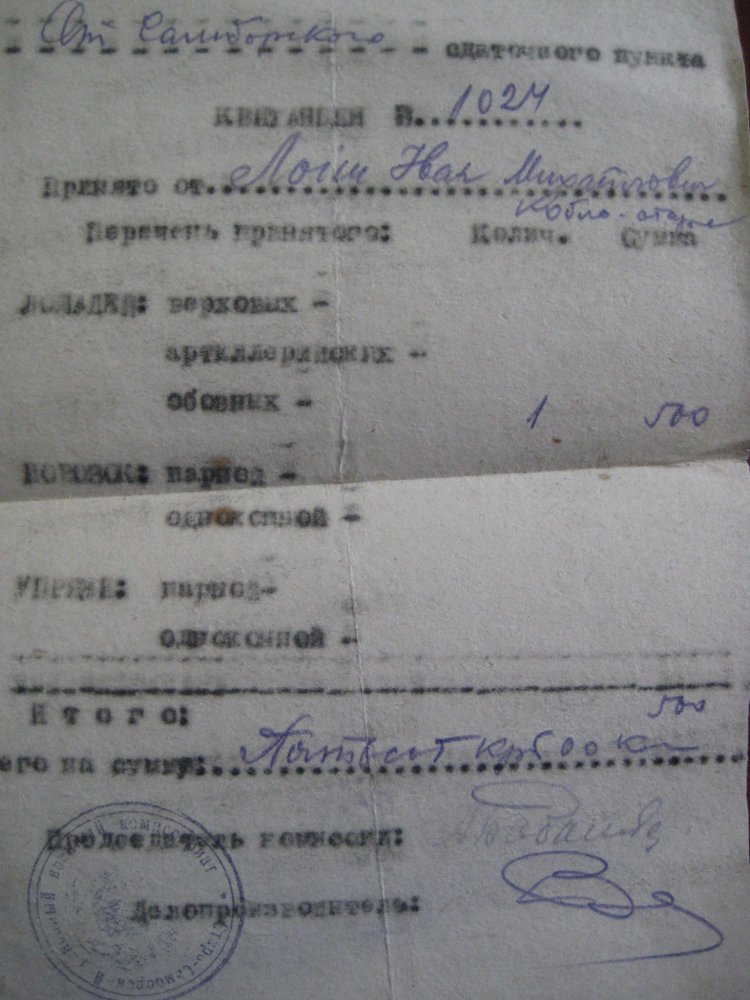 От Самборского сдаточного пункта
КВИТАНЦИЯ N. 1024
Принято от Иван Михайлович
Кобло-старе
Перечень принятого: Колич. Сумма
ЛОШАДЕЙ: верховых -
артиллерийских -
обозных - 1 500
ПОВОЗОК: парной -
одноконной -
УПРЯЖИ: парной -
одноконной -
Итого: 500
его на сумму: Пятьсот крб 00 к
Председатель комиссии:
Делопроизводитель:
военный комиссариат * Старо-Самборский районный